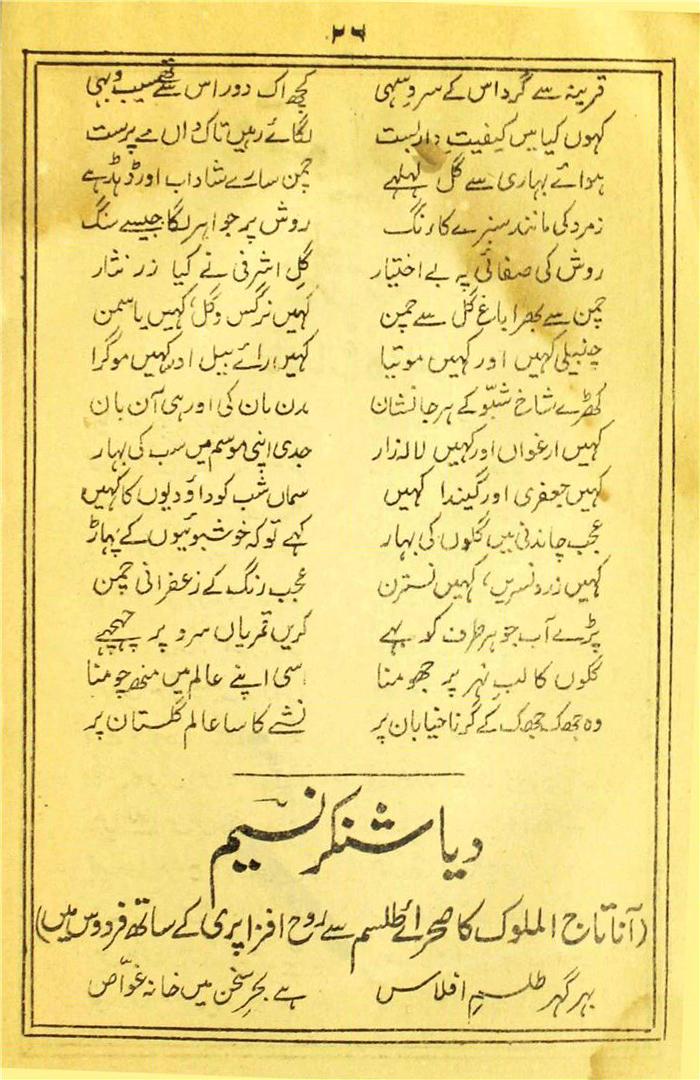 ۲۶
قرینہ سے گرد اس کے سرو سہی کچھ اک دور اس سے سیب و بہی
کہوں کیا میں کیفیت دار بست لگائے رہیں تاک واں مے پرست
ہوائے بہاری سے گل لہلہے چمن سارے شاداب اور ڈہڈہے
زمرد کی مانند سبزے کا رنگ روش پر جواہر لگا جیسے سنگ
روش کی صفائی پہ بے اختیار گلِ اشرفی نے کیا زر نثار
چمن سے بھرا باغ گل سے چمن کہیں نرگس و گل، کہیں یاسمن
چنبیلی کہیں اور کہیں موتیا کہیں رائے بیل اور کہیں موگرا
کھڑے شاخ شبّو کے ہر جا نشان مدن بان کی اور ہی آن بان
کہیں ارغواں اور کہیں لالہ زار جدی اپنی موسم میں سب کی بہار
کہیں جعفری اور گیندا کہیں سماں شب کو داؤدیوں کا کہیں
عجب چاندنی میں گلوں کی بہار کہے تو کہ خوشبوئیوں کے پہاڑ
کہیں زرد نسریں، کہیں نسترن عجب رنگ کے زعفرانی چمن
پڑے آب جو ہر طرف کو بہے کریں قمریاں سرو پر چہچہے
گلوں کا لبِ نہر پر جھومنا اسی اپنے عالم میں منھ چومنا
وہ جھک جھک کے گرنا خیابان پر نشے کا سا عالم گلستان پر
دیا شنکر نسیم
(آنا تاج الملوک کا صحرائے طلسم سے روح افزا پری کے ساتھ فردوس میں)
بہر گہر طلسمِ افلاس ہے بحرِ سخن میں خامہ غوّاص